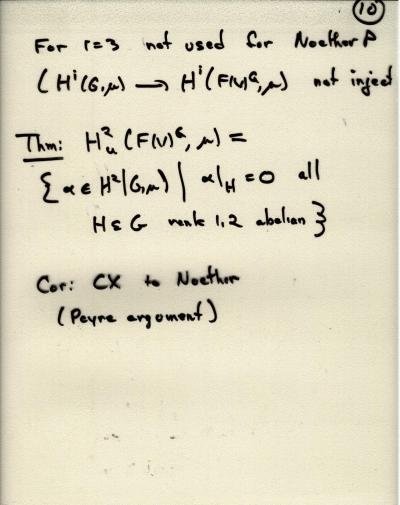 10
For r=3 not used for Noether P
(Hⁱ(G,μ) → Hⁱ(F(V)ᴳ,μ) not inject
Thm: H²ᵤ(F(V)ᴳ, μ) =
{α ∈ H²(G,μ) | α|_H = 0 all
H ⊆ G rank 1,2 abelian}
Cor: CX to Noether
(Peyre argument)